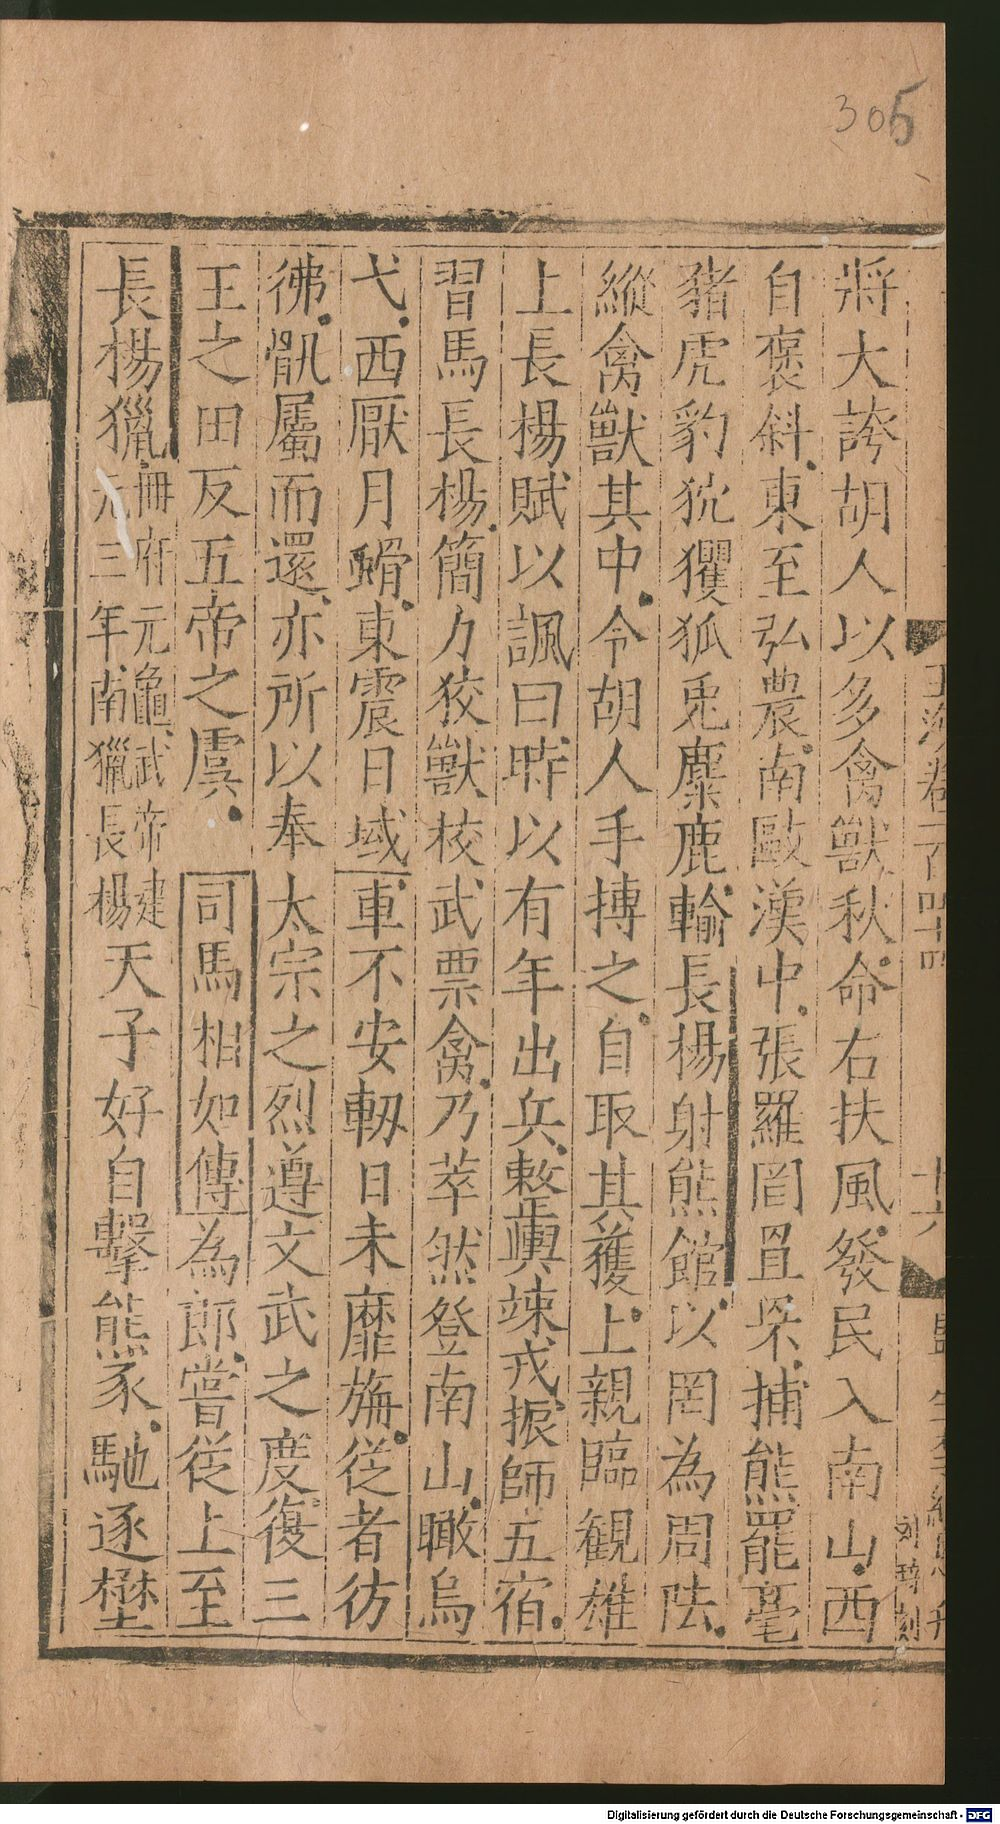 305
玉海卷一百四十四
十六
監生
刻
將大誇胡人以多禽獸秋命右扶風發民入南山西
自褒斜東至弘農南敺漢中張羅罔罝罘捕熊羆毫
豬虎豹狖玃狐兎麋鹿輸長楊射熊館以罔為周阹
縱禽獸其中令胡人手搏之自取其獲上親臨觀雄
上長楊賦以諷曰時以有年出兵整輿竦戎振師五宿
習馬長楊簡力狡獸校武票禽乃萃然登南山瞰烏
弋西厭月䠶東震日域車不安軔日未靡旃從者彷
彿骩屬而還亦所以奉太宗之烈遵文武之度復三
王之田反五帝之虞司馬相如傳為郎嘗從上至
長楊獵冊府元龜武帝建
元三年南獵長楊天子好自擊熊豕馳逐壄
Digitalisierung gefördert durch die Deutsche Forschungsgemeinschaft - DFG